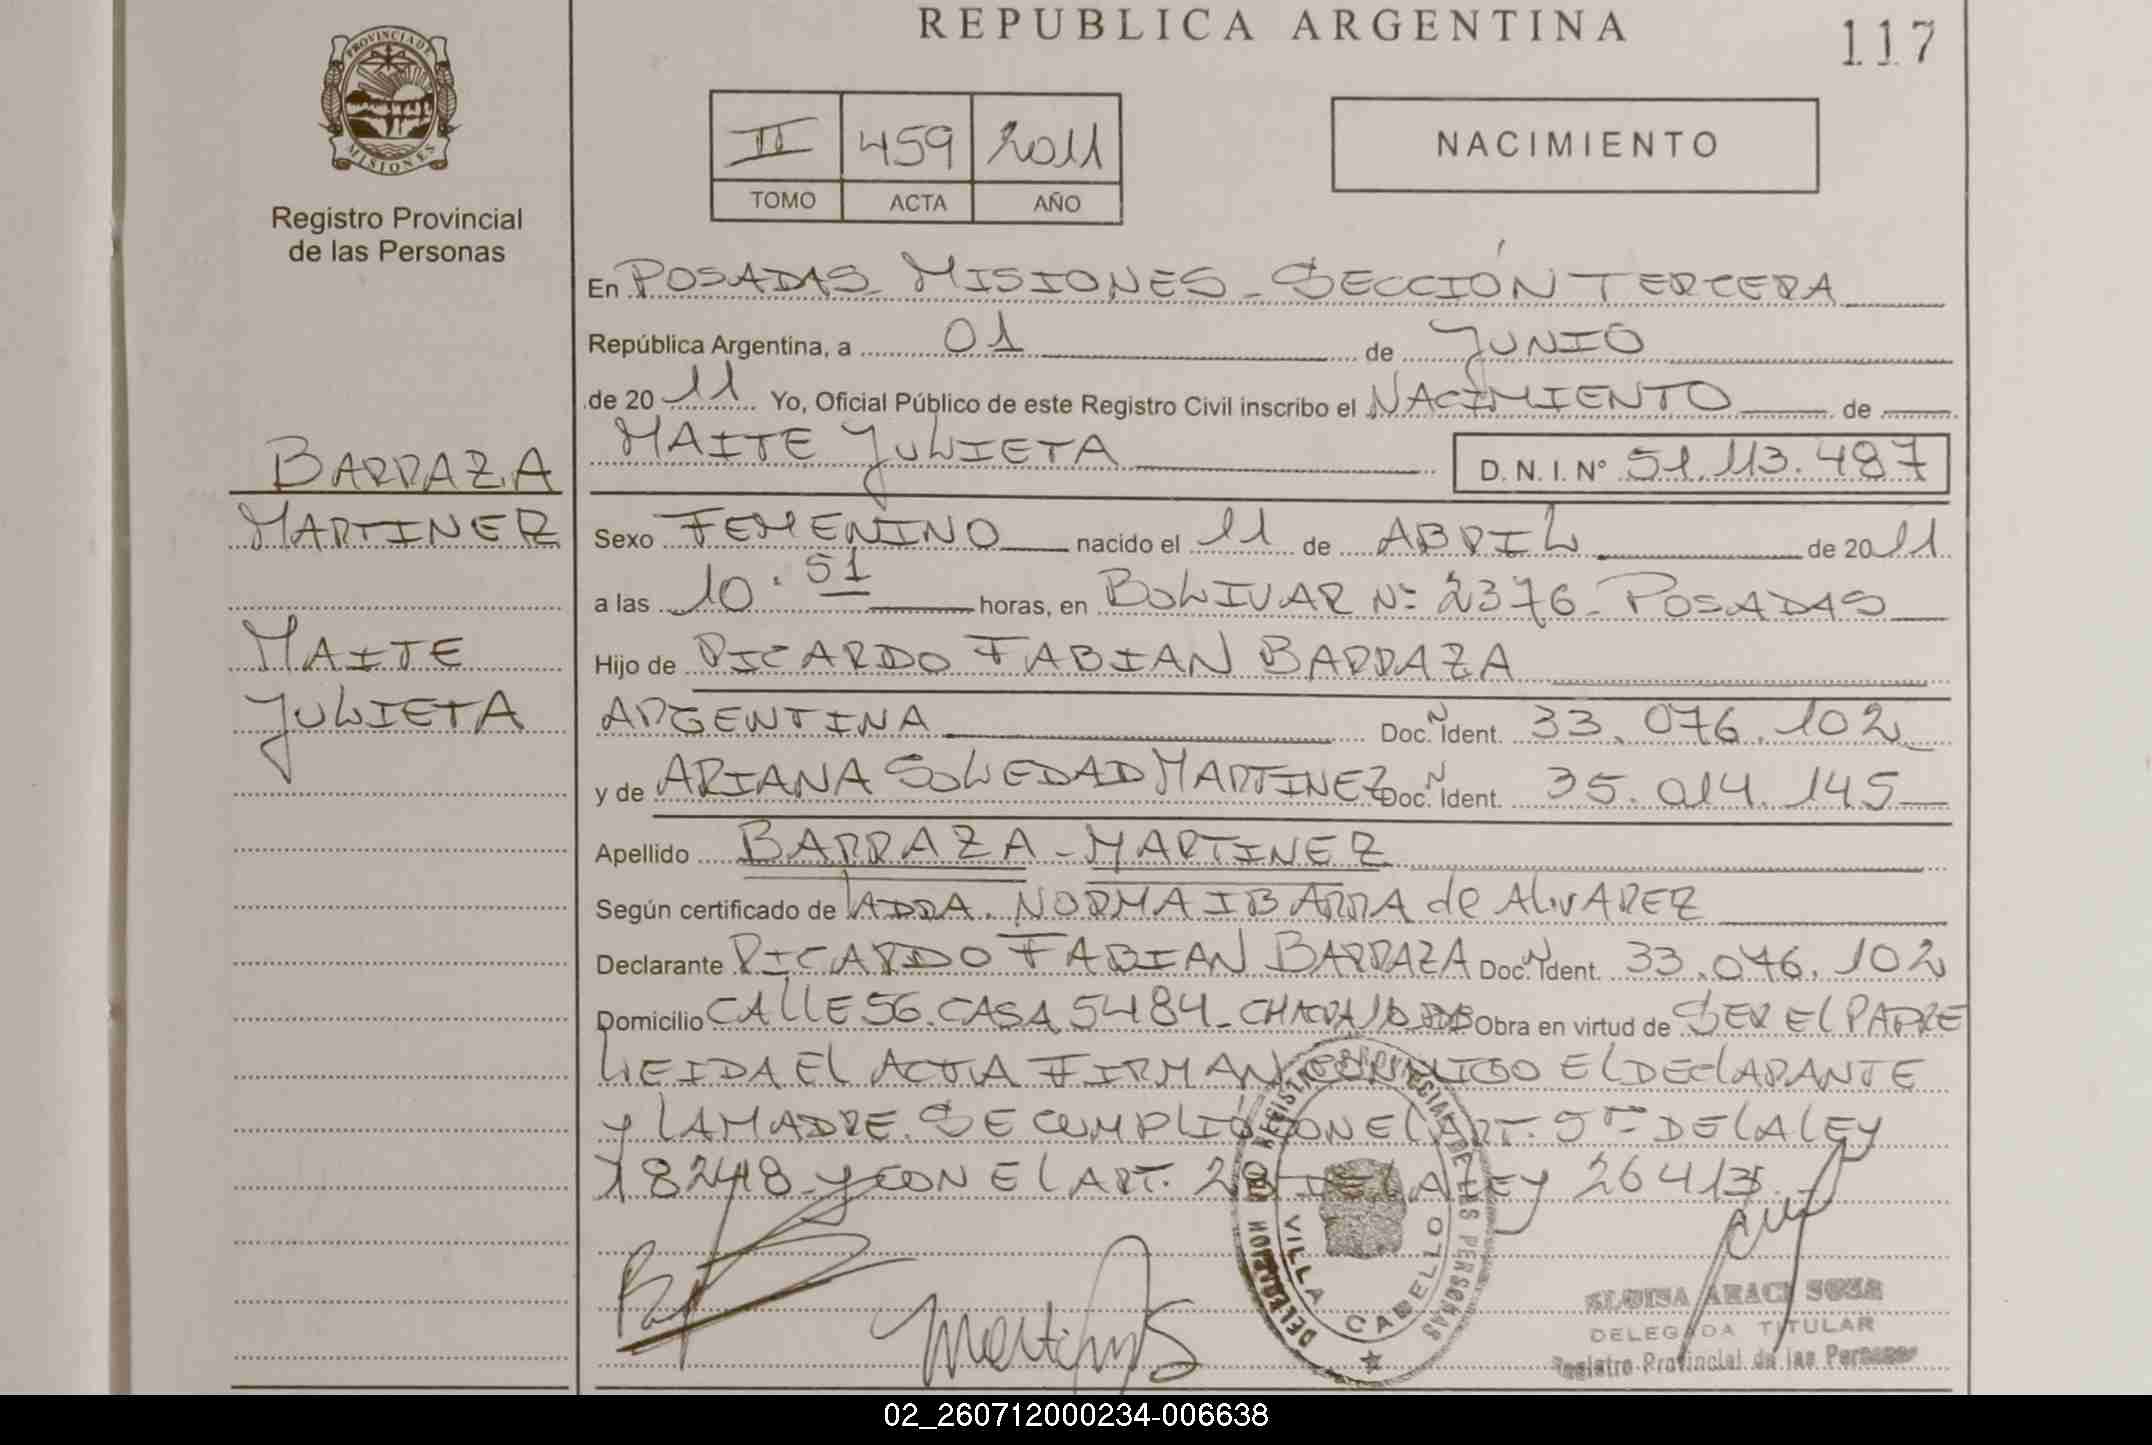 REPUBLICA ARGENTINA
117
PROVINCIA DE
MISIONES
Registro Provincial
de las Personas
II 459 2011
TOMO ACTA AÑO
NACIMIENTO
En POSADAS MISIONES - SECCIÓN TERCERA
República Argentina, a 01 de JUNIO
de 20 11 Yo, Oficial Público de este Registro Civil inscribo el NACIMIENTO de
MAITE JULIETA D.N.I. N° 51.113.487
BARRAZA
MARTINEZ
MAITE
JULIETA
Sexo FEMENINO nacido el 11 de ABRIL de 20 11
a las 10:51 horas, en BOLIVAR Nº 2376 - POSADAS
Hijo de RICARDO FABIAN BARRAZA
ARGENTINA Doc. N Ident. 33.076.102
y de ARIANA SOLEDAD MARTINEZ Doc. N Ident. 35.014.145
Apellido BARRAZA - MARTINEZ
Según certificado de LA DRA. NORMA IBARRA de ALVAREZ
Declarante RICARDO FABIAN BARRAZA Doc. N Ident. 33.076.102
Domicilio CALLE 56. CASA 5484 - Obra en virtud de SER El PADRE
LEIDA El ACTA FIRMAN CONMIGO El DEClARANTE
Y LA MADRE. SE CUMPLIÓ CON El ART. 5to DE LA LEY
18248 Y CON El ART. 28 DE LA LEY 26413.
DELEGACION DEL REGISTRO PROVINCIAL DE LAS PERSONAS
VILLA CABELLO
ELOISA ARACI SOSA
DELEGADA TITULAR
Registro Provincial de las Personas
02_260712000234-006638